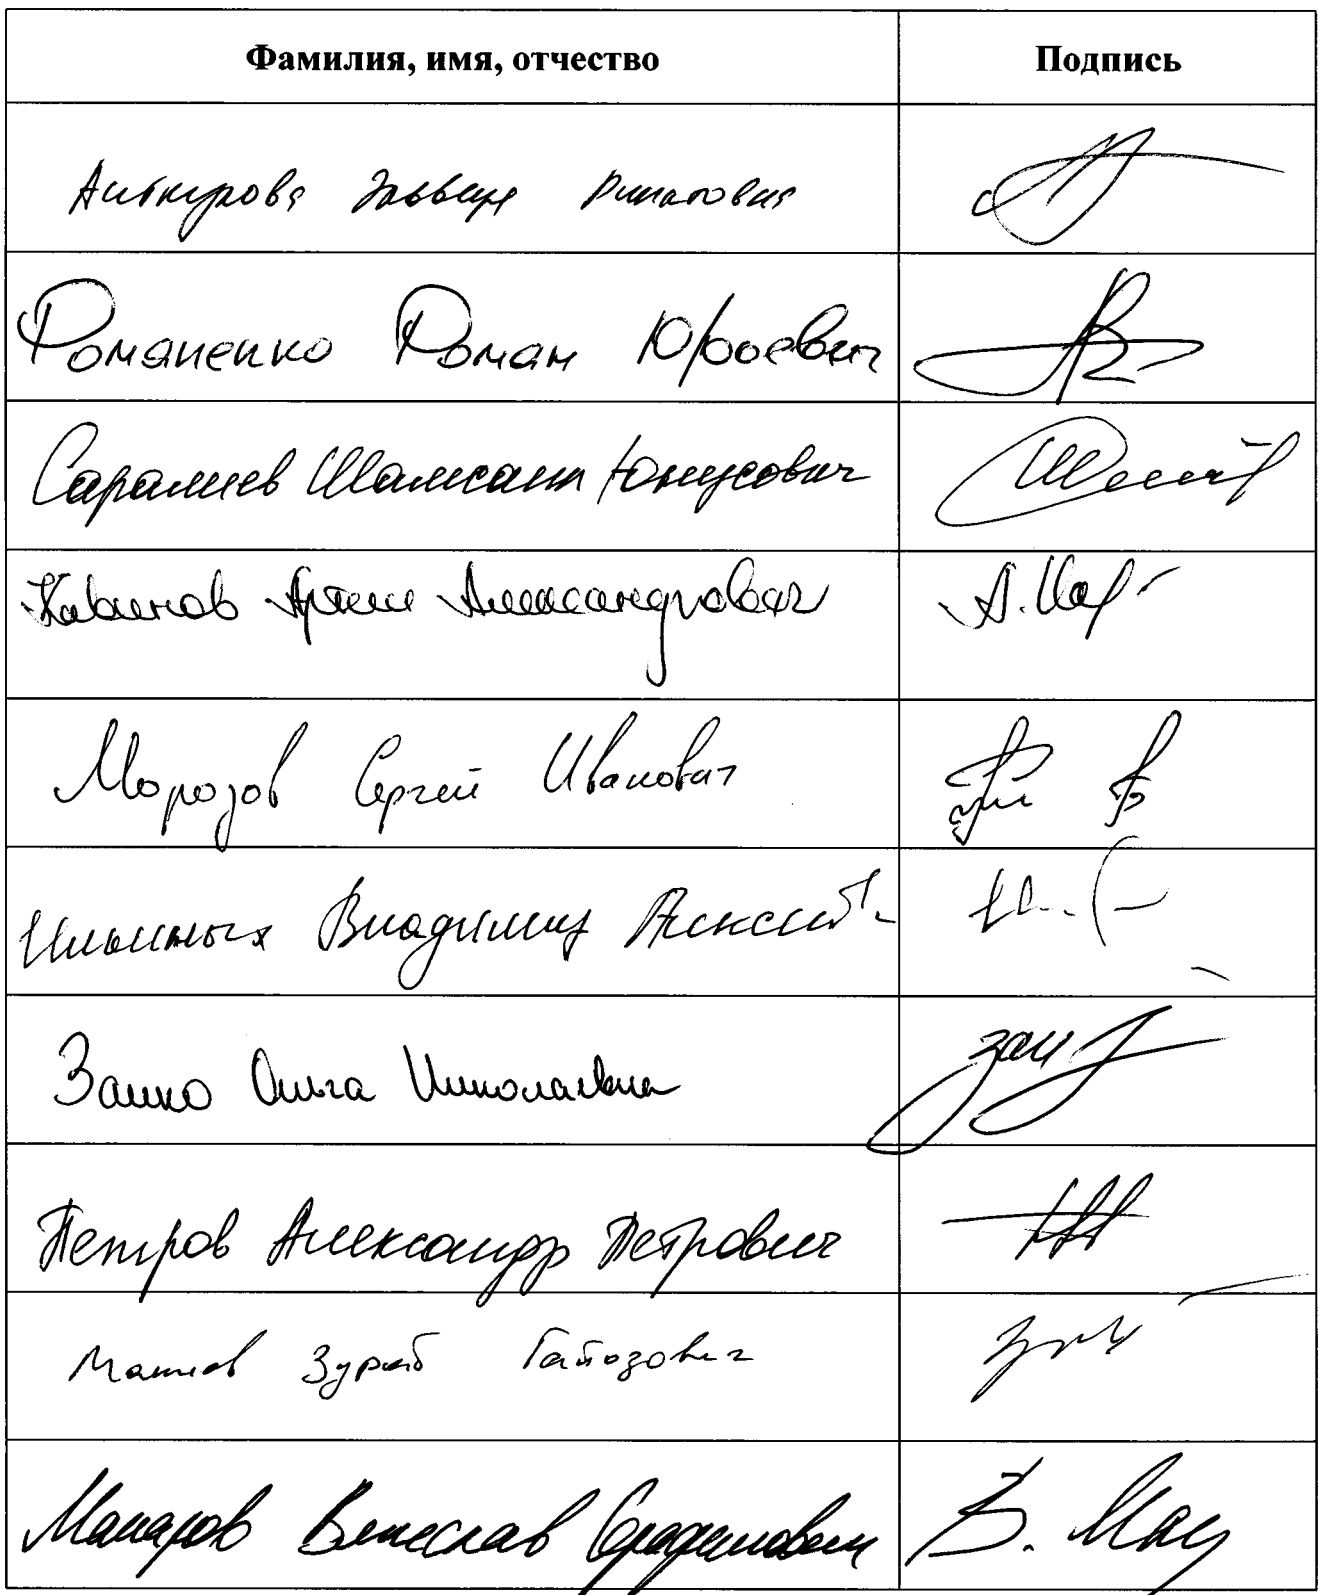 Фамилия, имя, отчество Подпись
Аиткулова Эльвира Ринатовна
Романенко Роман Юрьевич
Саралиев Шамсаил Юнусович
Кавинов Артём Александрович А.
Морозов Сергей Иванович
Ильиных Владимир Алексеевич
Заико Ольга Николаевна
Петров Александр Петрович
Макиев Зураб Гайозович
Макаров Вячеслав Серафимович В. Мак